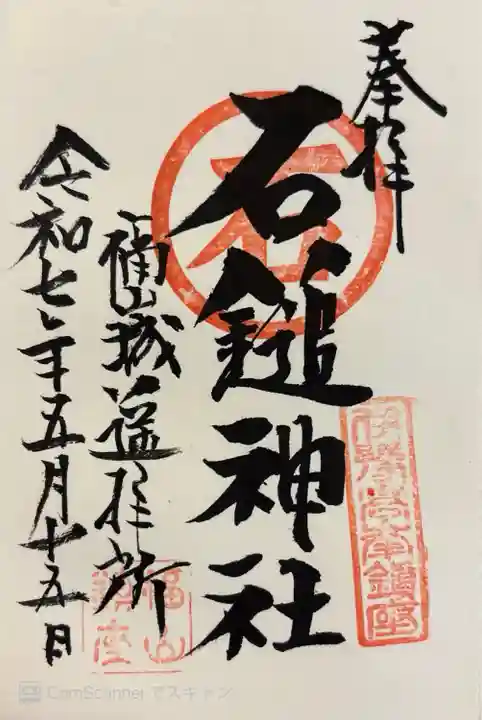 奉拝
石
石鎚神社
福山城遥拝所
令和七年五月十五日
福山
鎮座
CamScanner でスキャン